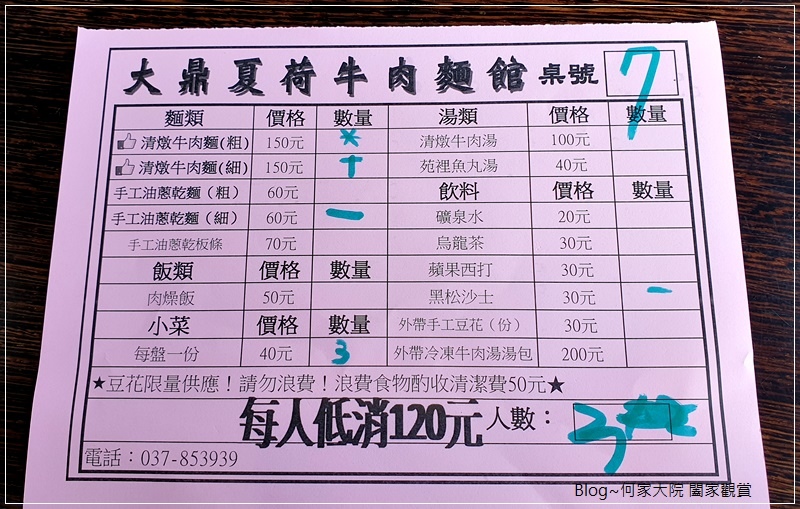 大鼎夏荷牛肉麵館 桌號 7
麵類 價格 數量 湯類 價格 數量
清燉牛肉麵(粗) 150元 清燉牛肉湯 100元
清燉牛肉麵(細) 150元 苑裡魚丸湯 40元
手工油蔥乾麵(粗) 60元 飲料 價格 數量
手工油蔥乾麵(細) 60元 一 礦泉水 20元
手工油蔥乾板條 70元 烏龍茶 30元
飯類 價格 數量 蘋果西打 30元
肉燥飯 50元 黑松沙士 30元 一
小菜 價格 數量 外帶手工豆花(份) 30元
每盤一份 40元 3 外帶冷凍牛肉湯湯包 200元
★豆花限量供應!請勿浪費!浪費食物酌收清潔費50元★
每人低消120元 人數: 3
電話:037-853939
Blog~何家大院 闔家觀賞